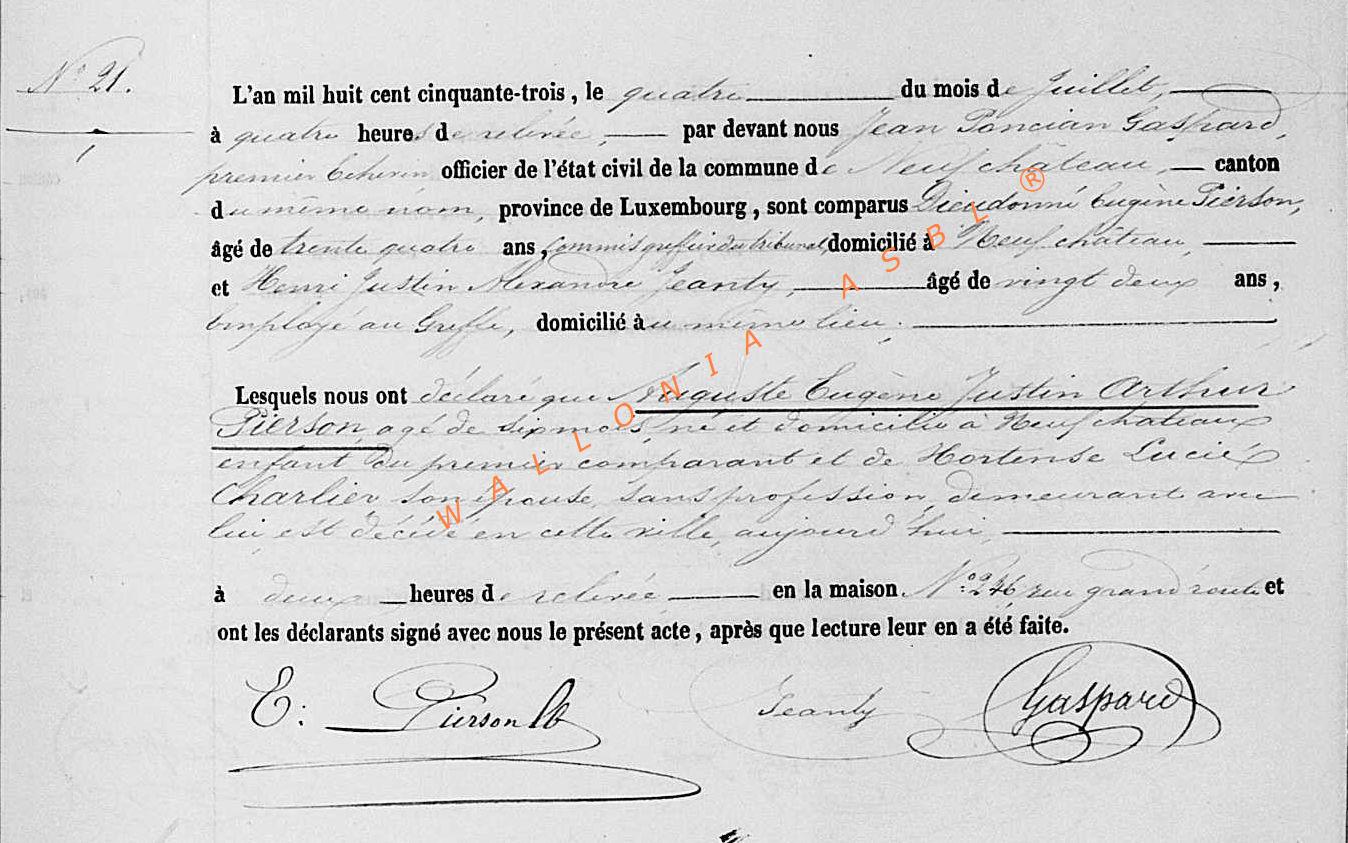 N° 21.
L'an mil huit cent cinquante-trois, le quatre du mois de Juillet,
à quatre heures de relevée, par devant nous Jean Poncian Gaspard,
premier Echevin officier de l'état civil de la commune de Neufchâteau, canton
du même nom, province de Luxembourg, sont comparus Dieudonné Eugène Pierson,
âgé de trente quatre ans, Commis greffier du tribunal, domicilié à Neufchâteau,
et Henri Justin Alexandre Jeanty, âgé de vingt deux ans,
Employé au Greffe, domicilié au même lieu.
Lesquels nous ont déclaré que Auguste Eugène Justin Arthur
Pierson, agé de six mois, né et domicilié à Neufchateau
enfant du premier comparant et de Hortense Lucie
Charlier, son épouse, sans profession, demeurant avec
lui, est décédé en cette ville, aujourd'hui,
à deux heures de relevée en la maison N° 246 rue grand'route et
ont les déclarants signé avec nous le présent acte, après que lecture leur en a été faite.
E: Pierson Jeanty Gaspard
WALLONIA ASBL ®